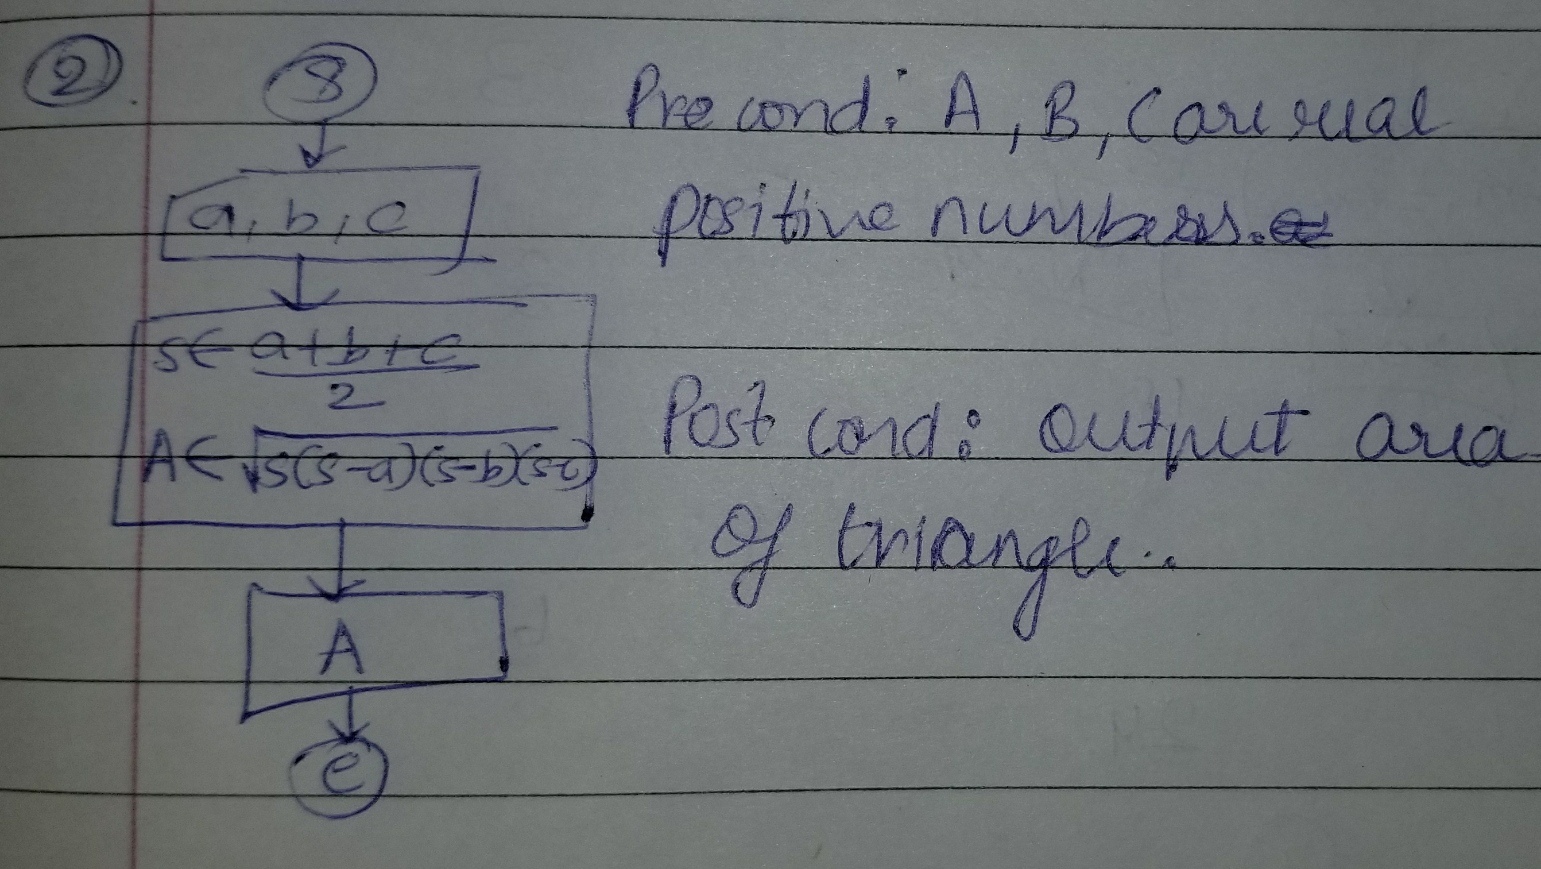 2
S
a, b, c
s ← a+b+c
2
A ← √s(s-a)(s-b)(s-c)
A
e
Pre cond: A, B, C are real
positive numbers.
Post cond: Output area
of triangle..